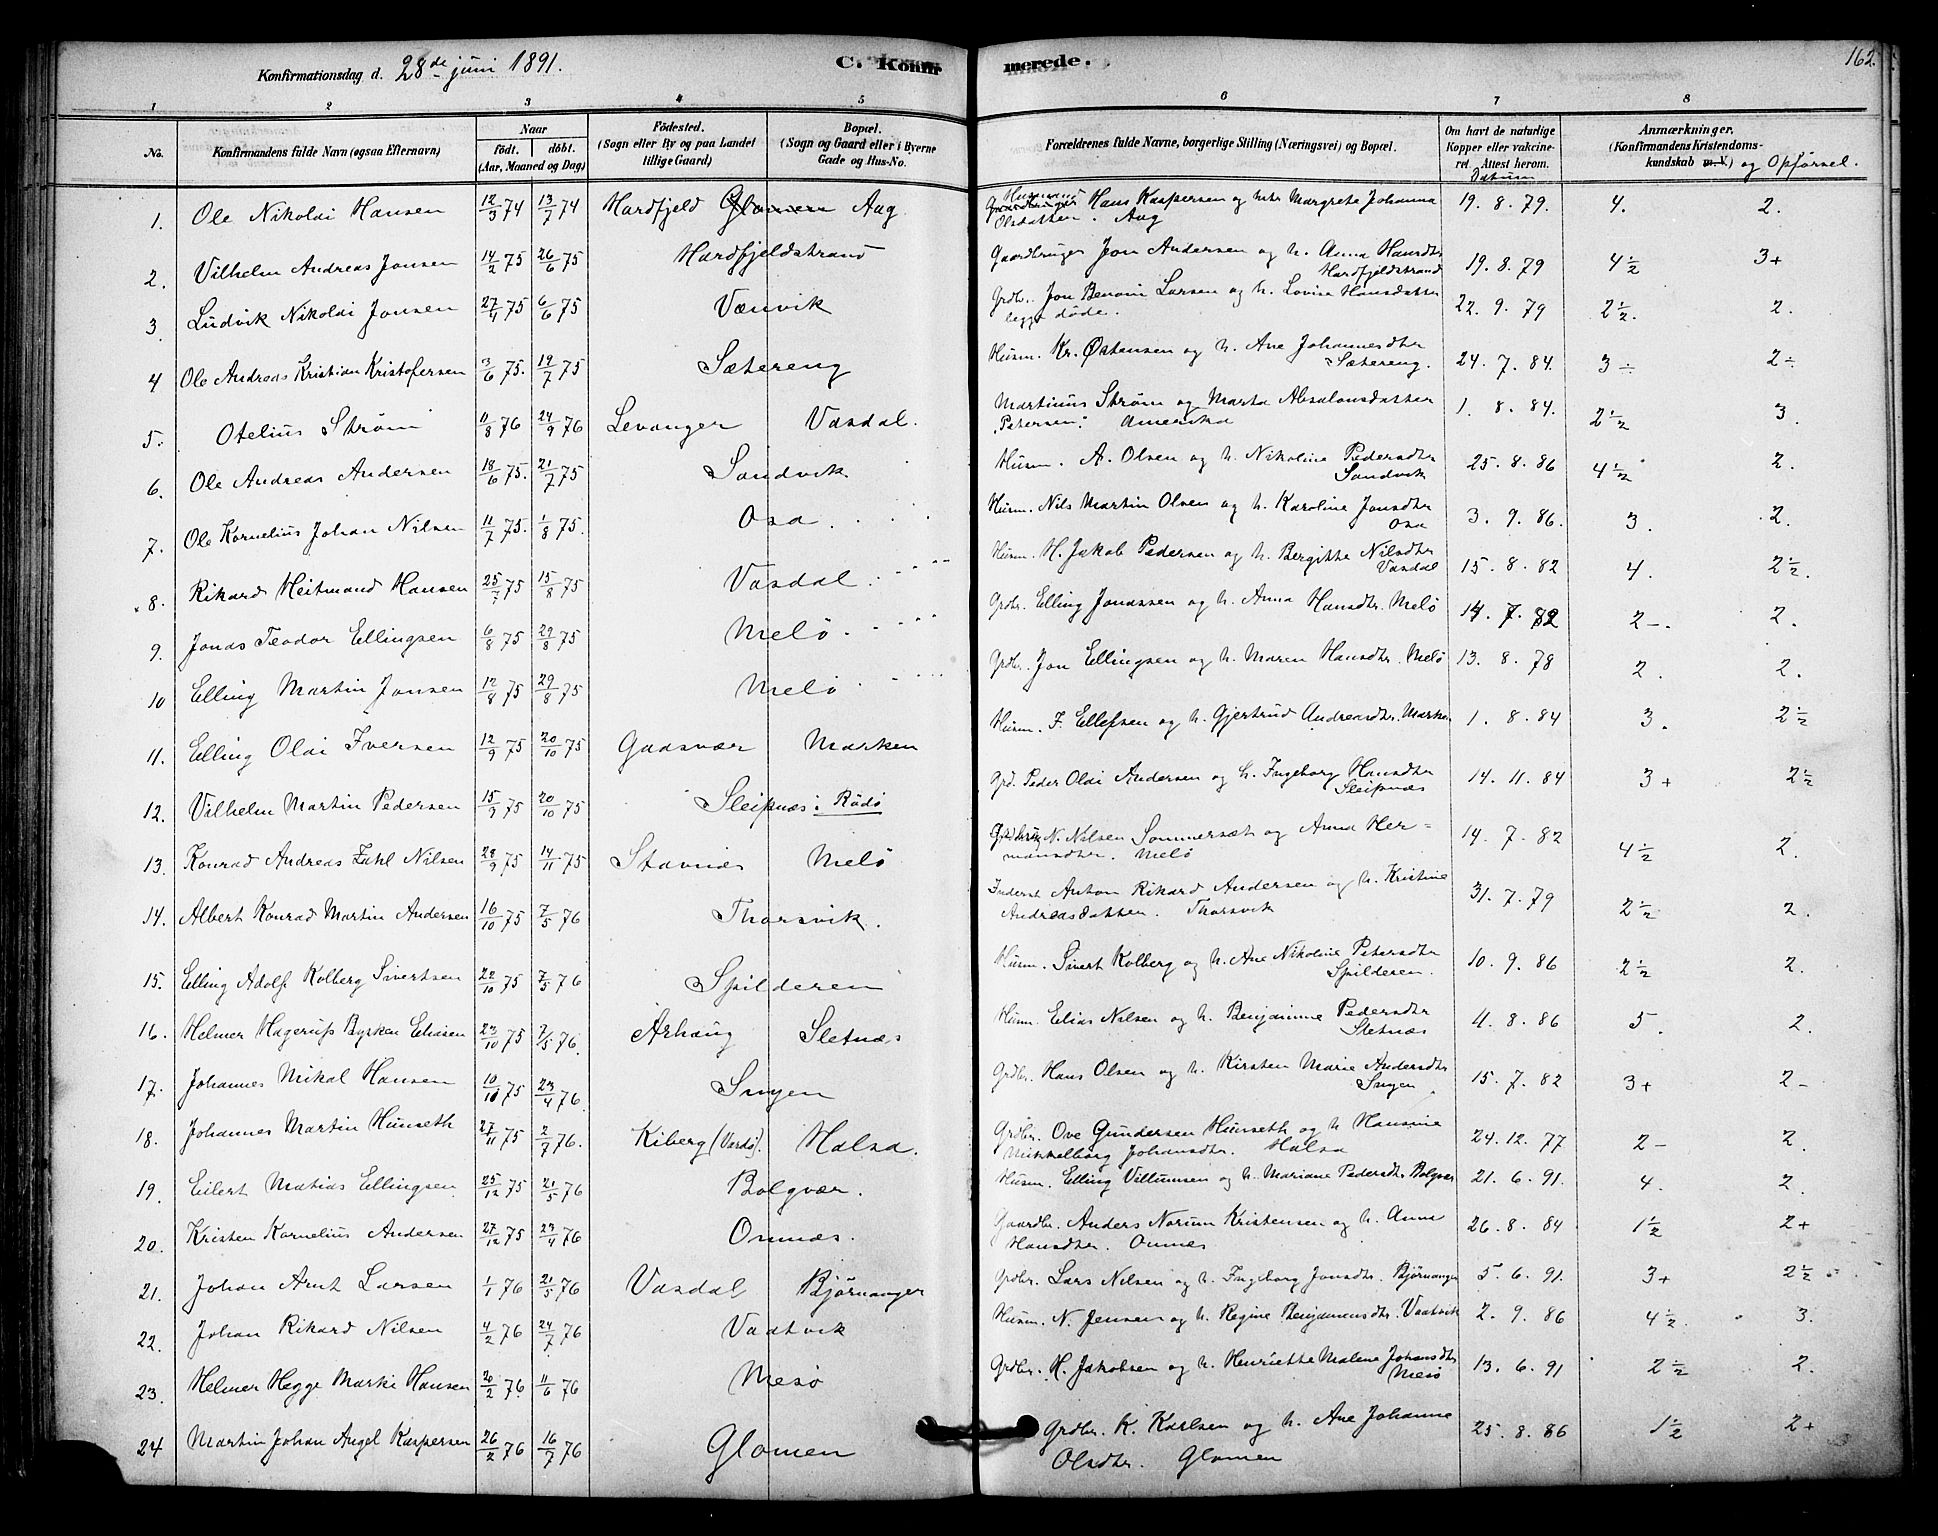 Konfirmationsdag d. 28de juni 1891. C. Konfirmerede. 162.
1 2 3 4 5 6 7 8
No. Konfirmandens fulde Navn (ogsaa Efternavn) Naar født. døbt. (Aar, Maaned og Dag) Fødested. (Sogn eller By og paa Landet tillige Gaard) Bopæl. (Sogn og Gaard eller i Byerne Gade og Hus-No. Forældrenes fulde Navne, borgerlige Stilling (Næringsvei) og Bopæl. Om havt de naturlige Kopper eller vakcineret. Attest herom. Datum Anmærkninger. (Konfirmandens Kristendomskundskab m. V.) og Opførsel.
1. Ole Nikolai Hansen 12/3 74 13/7 74 Hardfjeld Glomen Aag Husmand Gaardbruger Hans Kaspersen og Margrete Johanna 19.8.79. 4. 2.
Olsdatter. Aag
2. Vilhelm Andreas Jonsen 14/2 75 26/6 75 Hardfjeldstrand Gaardbruger Jon Andersen og h. Anna Hansdtr 19.8.79 4 1/2 3+
Hardfjeldstrand
3. Ludvik Nikolai Jonsen 27/4 75 6/6 75 Vænvik Grdbr. Jon Benoni Larsen og h. Lovise Hansdatter 22.9.79 2 1/2. 2.
begge døde.
4 Ole Andreas Kristian Kristofersen 3/6 75. 19/7 75 Sætereng Husm. Kr. Østensen og h. Ane Johannesdtr 24.7.84. 3 ÷ 2÷
Sætereng.
5. Otelius Strøm 11/8 76 24/9 76 Levanger Vasdal. Martinus Strøm og Marta Absalonsdatter 1.8.84. 2 1/2 3.
Petersen: Amerika
6. Ole Andreas Andersen 18/6 75. 21/7 75 Sandvik Husm. A. Olsen og h. Nikoline Pedersdtr 25.8.86 4 1/2 2.
Sandvik
7. Ole Kornelius Johan Nilsen 11/7 75. 1/8 75. Osa Husm. Nils Martin Olsen og h. Karoline Jonsdtr 3.9.86. 3. 2.
Osa
8. Rikard Heitmand Hansen 25/7 75 15/8 75 Vasdal Husm. H. Jakob Pedersen og h. Bergitte Nilsdtr 15.8.82 4. 2 1/2.
Vasdal
9. Jonas Teodor Ellingsen 6/8 75 29/8 75 Melø Grdbr. Elling Jonassen og h. Anna Hansdtr. Melø 14.7.82 2-. 2.
10 Elling Martin Jonsen 12/8 75 29/8 75 Melø Grdbr. Jon Ellingsen og h. Maren Hansdtr. Melø 13.8.78 2. 2.
11. Elling Olai Iversen 12/9 75 20/10 75 Gaasvær Marken Husm. I. Ellefsen og h. Gjertrud Andreasdtr. Marken 1.8.84 3. 2 1/2
12. Vilhelm Martin Pedersen 15/9 75 20/10 75 Sleipnæs: Rødø Grd. Peder Olai Andersen og h. Ingeborg Hansdtr 14.11.84 3+ 2 1/2
Sleipnæs
13. Konrad Andreas Zahl Nilsen 28/9 75 14/11 75 Stavnæs Melø N. Nilsen Sommersæt og Anna Her= 14.7.82 4 1/2 2.
mansdtr. Melø
14. Albert Konrad Martin Andersen 16/10 75 7/5 76 Thorsvik. Inderst Anton Rikard Andersen og h. Kristine 31.7.79 2 1/2 2.
Andreasdatter. Thorsvik
15. Elling Adolf Kolberg Sivertsen 22/10 75 7/5 76 Spilderen Husm. Sivert Kolberg og h. Ane Nikoline Petersdtr 10.9.86 2 1/2 2.
Spilderen.
16. Helmer Hagerup Byrken Eliasen 23/10 75 7/5 76. Arhaug Sletnæs Husm. Elias Nilsen og h. Benjamine Pedersdtr 4.8.86 5. 2.
Sletnæs
17. Johannes Mikal Hansen 10/10 75 23/4 76. Smyen Grdbr. Hans Olsen og h. Kirsten Marie Andersdtr 15.7.82 3+ 2-
Smyen
18. Johannes Martin Hunseth 27/11 75 2/7 76. Kiberg (Vardø). Halsa. Grdbr. Ove Gundersen Hunseth og h. Hansine 24.12.77 2- 2.
Mikkelborg Johansdtr. Halsa
19. Eilert Matias Ellingsen 25/12 75 21/5 76 Bolgvær. Husm. Elling Villumsen og h. Mariane Pedersdtr Bolgvær 21.6.91. 4. 2.
20. Kristen Kornelius Andersen 27/12 75 23/4 76 Onnæs. Gaardbr. Anders Norum Kristensen og h. Anna 26.8.84 1 1/2 2+
Hansdtr. Onnes
21. Johan Arnt Larsen 1/1 76 21/5 76 Vasdal Bjørnanger Grdbr. Lars Nilsen og h. Ingeborg Jonsdtr. Bjørnanger 5.6.91. 3+ 2 1/2
22. Johan Rikard Nilsen 4/2 76 24/7 76 Vaatvik Husm. N. Jensen og h. Regine Benjaminsdtr. Vaatvik 2.9.86 4 1/2. 3.
23. Helmer Hegge Marki Hansen 20/2 76. 11/6 76 Mesø Grdbr. H. Jakobsen og h. Henriette Malene Johansdtr 13.6.91 2 1/2 2.
Mesø
24 Martin Johan Angel Kaspersen 26/2 76 16/7 76 Glomen Grdbr. K. Karlsen og h. Ane Johanne 25.8.86 1 1/2 2+
Olsdtr. Glomen